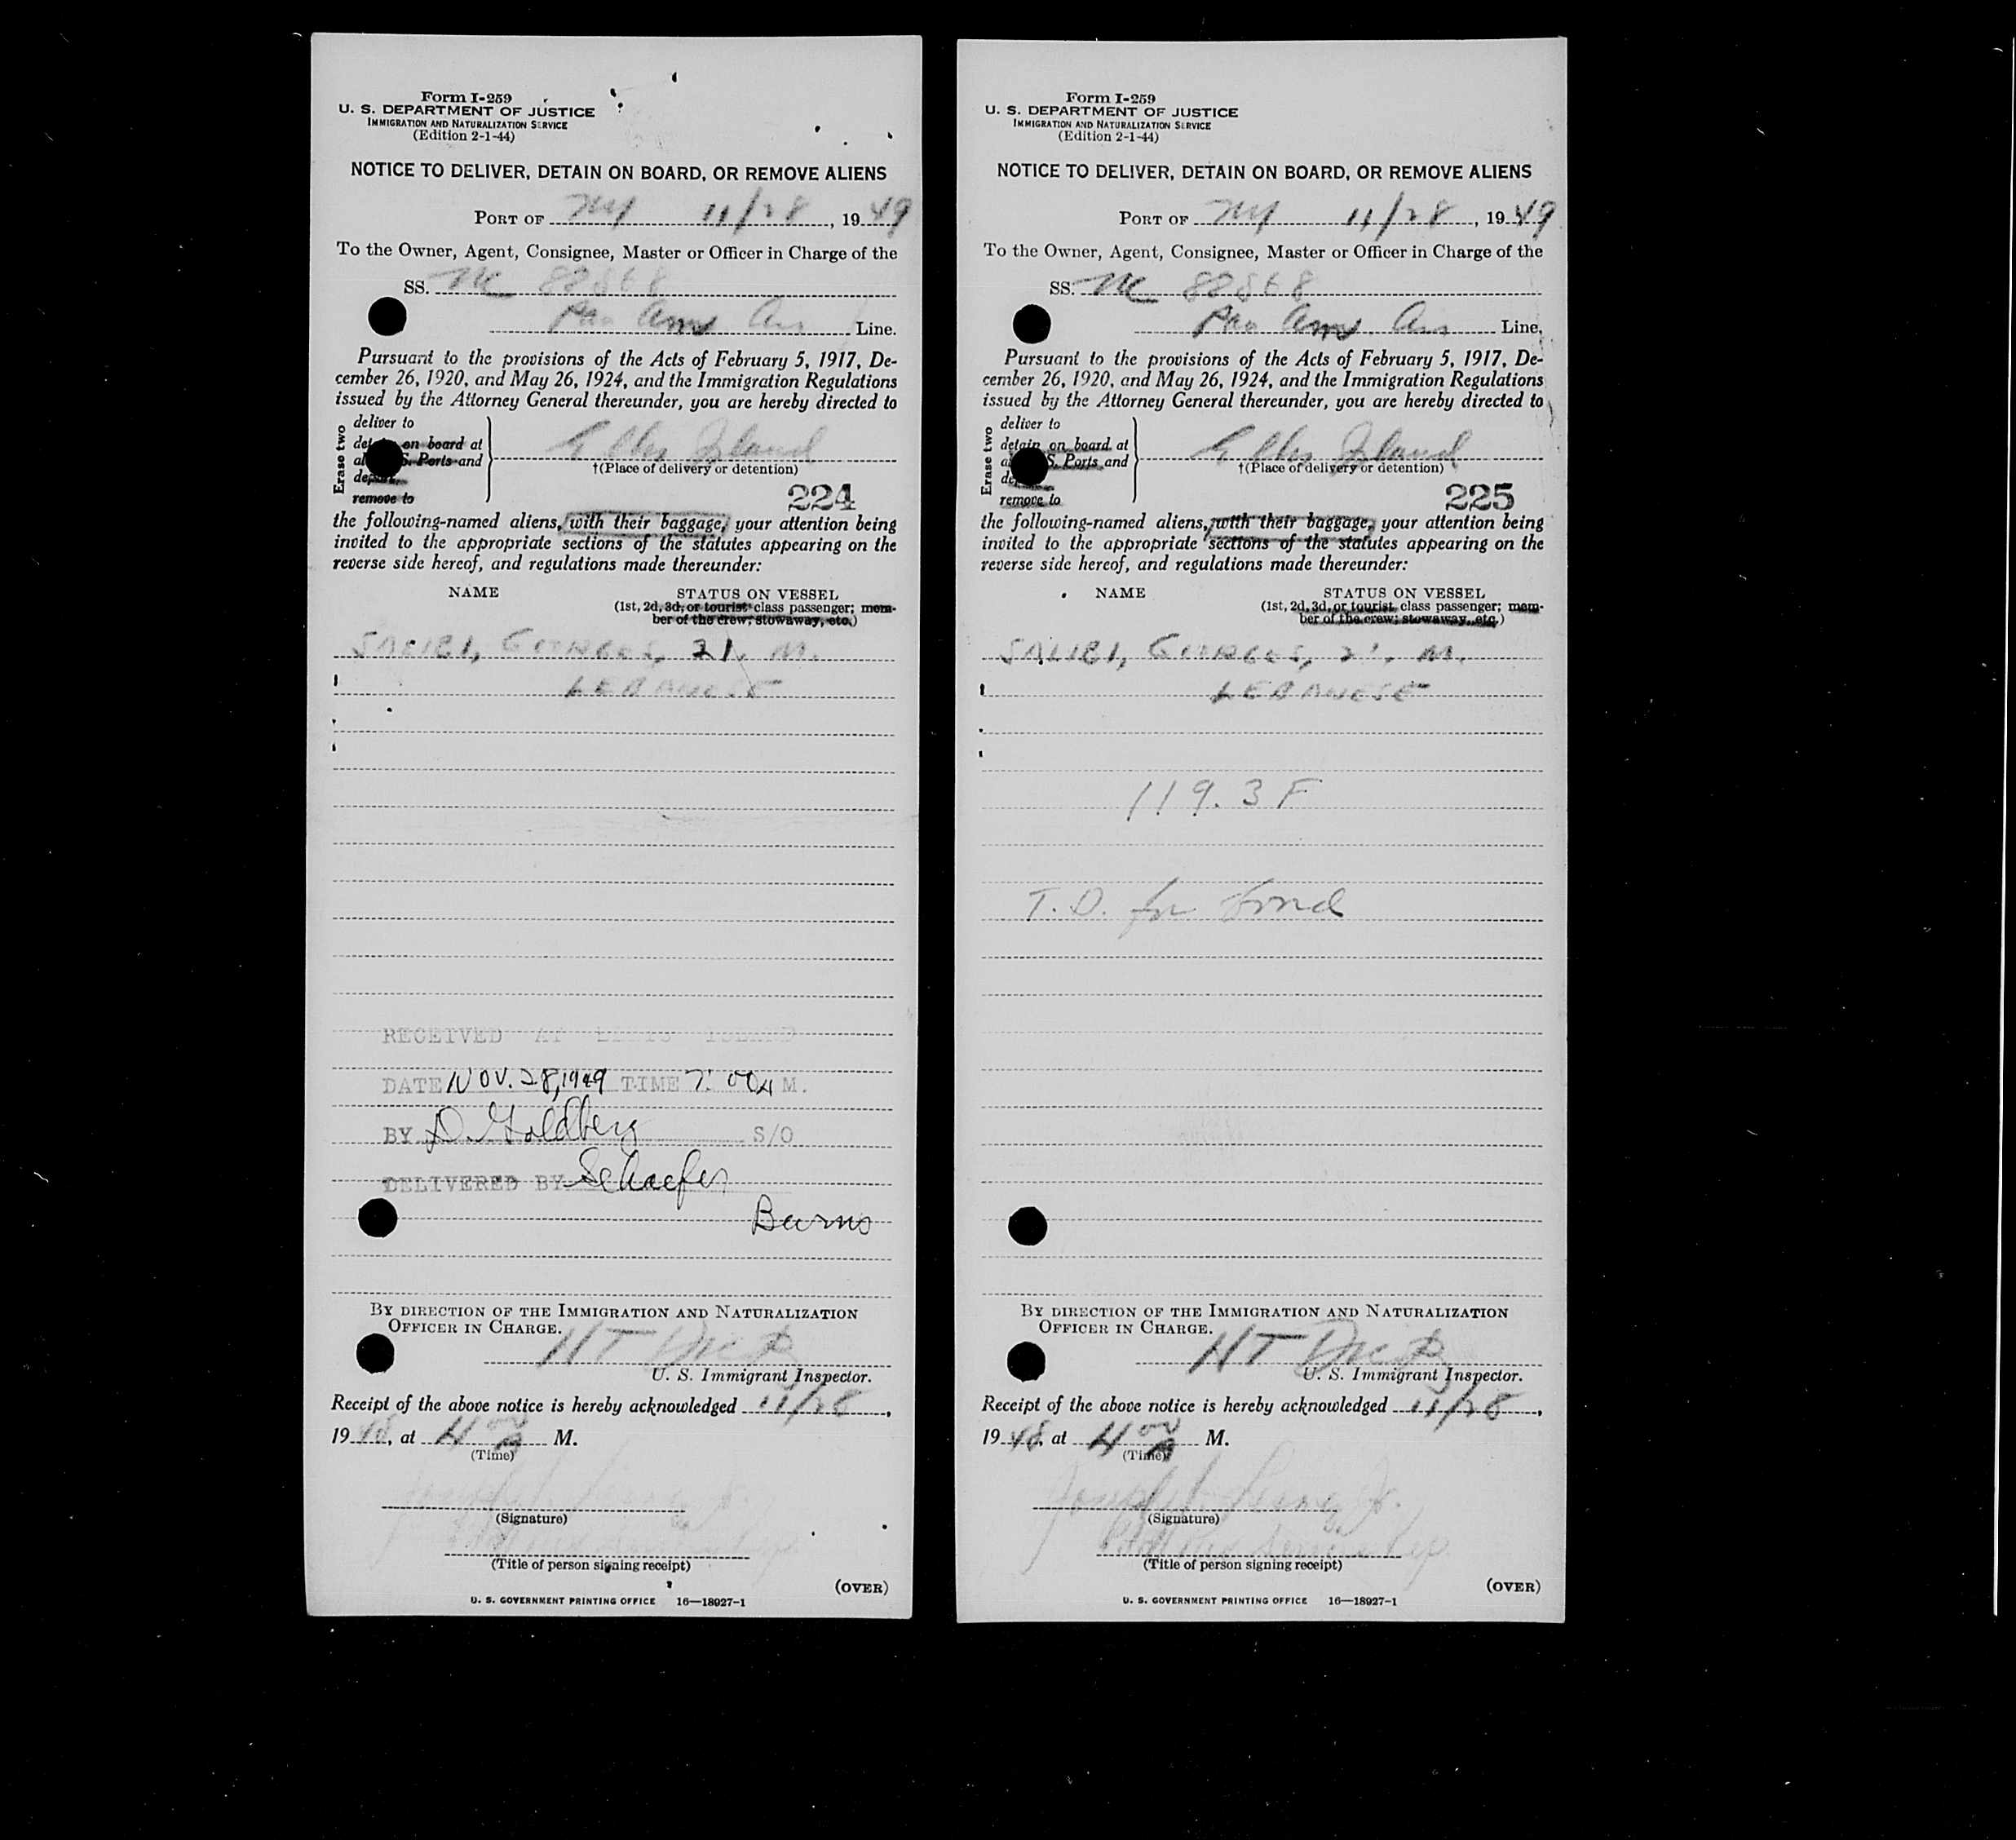 Form I-259
U. S. DEPARTMENT OF JUSTICE
IMMIGRATION AND NATURALIZATION SERVICE
(Edition 2-1-44)
NOTICE TO DELIVER, DETAIN ON BOARD, OR REMOVE ALIENS
PORT OF NY 11/28, 1949
To the Owner, Agent, Consignee, Master or Officer in Charge of the
SS. NC 88868
Pan Am Air Line.
Pursuant to the provisions of the Acts of February 5, 1917, De-
cember 26, 1920, and May 26, 1924, and the Immigration Regulations
issued by the Attorney General thereunder, you are hereby directed to
Erase two
deliver to
on board at
S. Ports and
remove to
Ellis Island
†(Place of delivery or detention)
224
the following-named aliens, with their baggage, your attention being
invited to the appropriate sections of the statutes appearing on the
reverse side hereof, and regulations made thereunder:
NAME STATUS ON VESSEL
(1st, 2d, 3d, or tourist class passenger; mem-
ber of the crew; stowaway, etc.)
SALIBI, GEORGES, 21, M.
LEBANESE
RECEIVED AT ELLIS ISLAND
DATE NOV. 28, 1949 TIME 7:00 A M.
BY D. Goldberg S/O
DELIVERED BY Schaefer
Burns
BY DIRECTION OF THE IMMIGRATION AND NATURALIZATION
OFFICER IN CHARGE.
HT
U. S. Immigrant Inspector.
Receipt of the above notice is hereby acknowledged 11/28,
1948, at 4 00 A M.
(Time)
(Signature)
(Title of person signing receipt)
(OVER)
U. S. GOVERNMENT PRINTING OFFICE 16—18927-1
Form I-259
U. S. DEPARTMENT OF JUSTICE
IMMIGRATION AND NATURALIZATION SERVICE
(Edition 2-1-44)
NOTICE TO DELIVER, DETAIN ON BOARD, OR REMOVE ALIENS
PORT OF NY 11/28, 1949
To the Owner, Agent, Consignee, Master or Officer in Charge of the
SS. NC 88868
Pan Am Air Line.
Pursuant to the provisions of the Acts of February 5, 1917, De-
cember 26, 1920, and May 26, 1924, and the Immigration Regulations
issued by the Attorney General thereunder, you are hereby directed to
Erase two
deliver to
detain on board at
S. Ports and
remove to
Ellis Island
†(Place of delivery or detention)
225
the following-named aliens, with their baggage, your attention being
invited to the appropriate sections of the statutes appearing on the
reverse side hereof, and regulations made thereunder:
NAME STATUS ON VESSEL
(1st, 2d, 3d, or tourist class passenger; mem-
ber of the crew; stowaway, etc.)
SALIBI, GEORGES, 21, M.
LEBANESE
119.3 F
T.D. for bond
BY DIRECTION OF THE IMMIGRATION AND NATURALIZATION
OFFICER IN CHARGE.
HT
U. S. Immigrant Inspector.
Receipt of the above notice is hereby acknowledged 11/28,
1948, at 4 00 A M.
(Time)
(Signature)
(Title of person signing receipt)
(OVER)
U. S. GOVERNMENT PRINTING OFFICE 16—18927-1